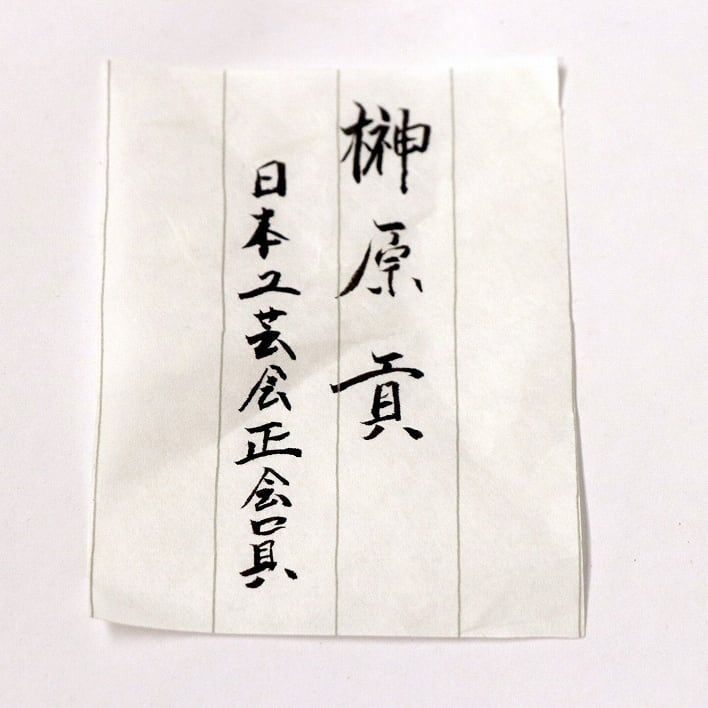 榊原貢
日本工芸会正会員